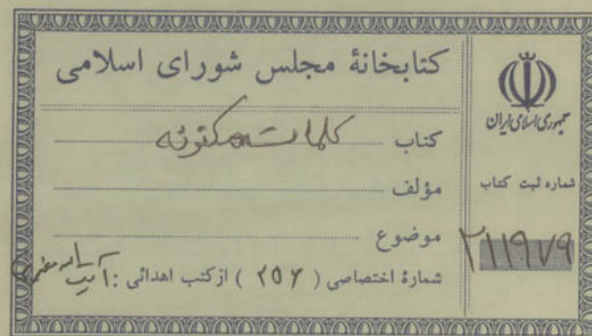 کتابخانهٔ مجلس شورای اسلامی
جمهوری اسلامی ایران
کتاب کلمات مکنونه
مؤلف
موضوع
شمارهٔ اختصاصی ( ۲۵۶ ) از کتب اهدائی :
شماره ثبت کتاب
۲۱۱۹۷۹